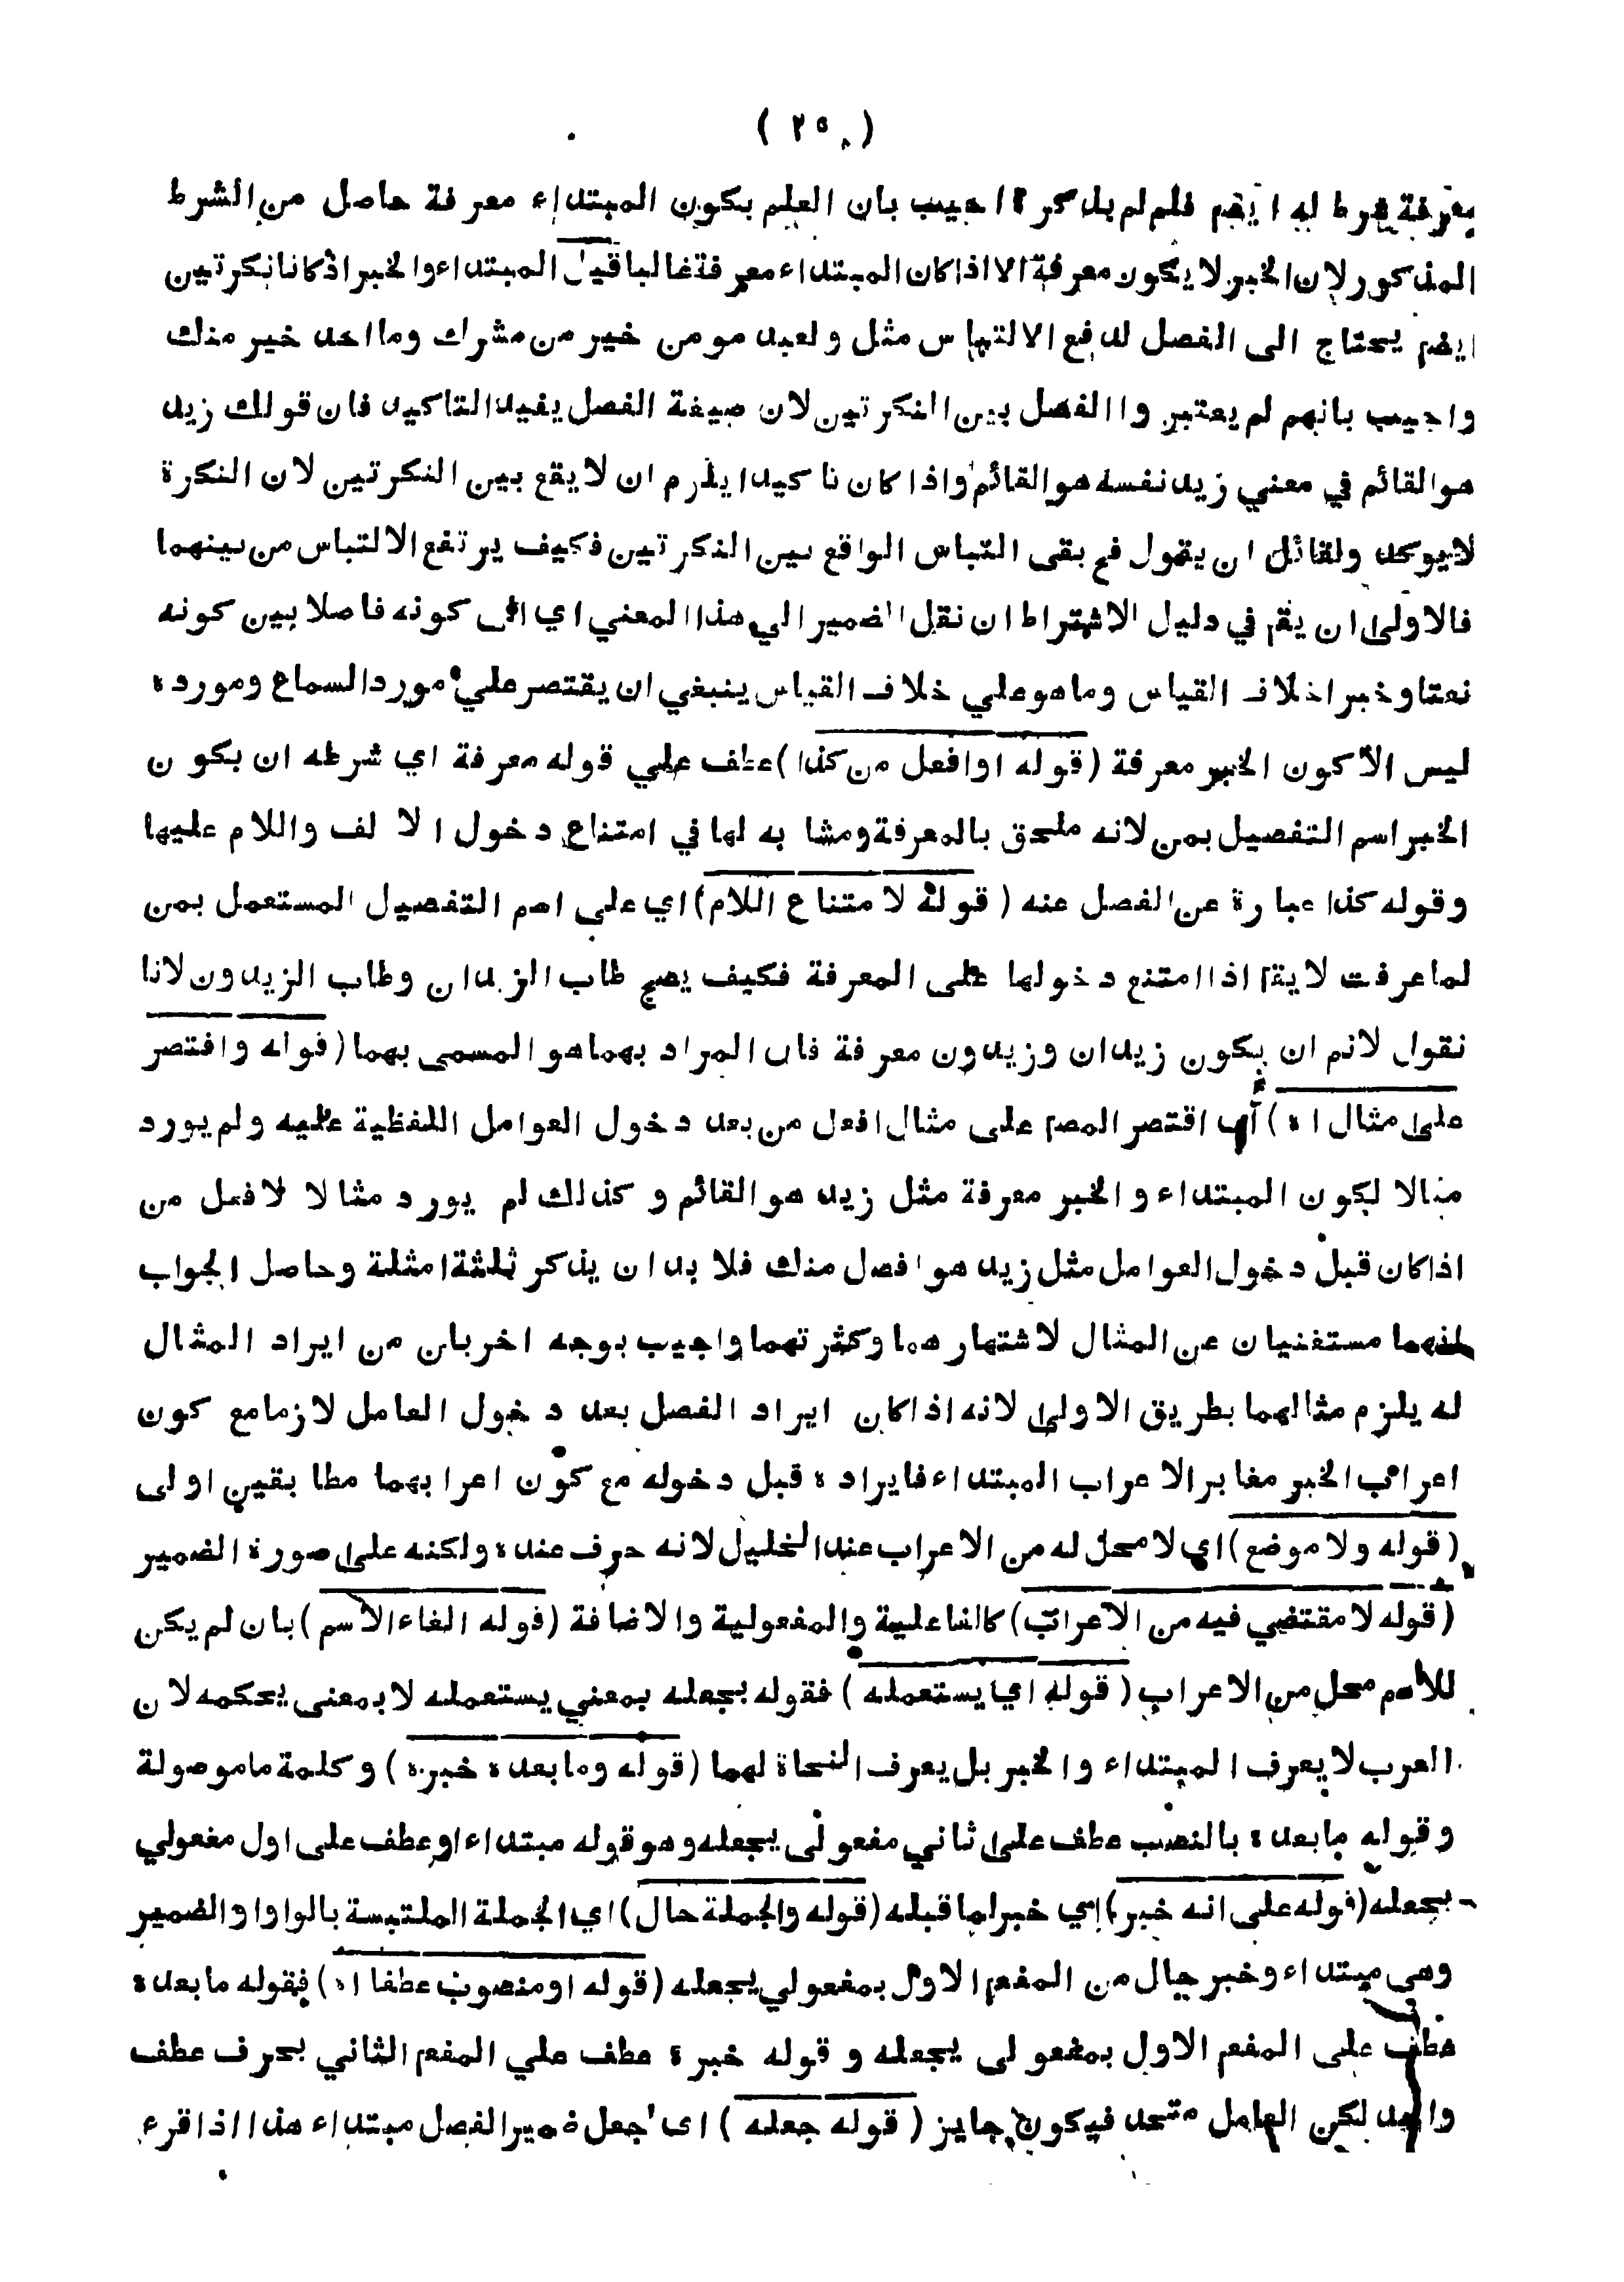 ( ٢٥٠ )
معرفة شرط له ايضم فلم لم يذكره اجيب بان العلم بكون المبتداء معرفة حاصل من الشرط
المذكور لان الخبر لا يكون معرفة الا اذا كان المبتداء معرفة غالبا قيل المبتداء والخبر اذ كانا نكرتين
ايضم يحتاج الى الفصل لدفع الالتباس مثل ولعبد مومن خير من مشرك وما احد خير منك
واجيب بانهم لم يعتبروا الفصل بين النكرتين لان صيغة الفصل يفيد التاكيد فان قولك زيد
هو القائم في معني زيد نفسه هو القائم واذا كان تاكيدا يلزم ان لا يقع بين النكرتين لان النكرة
لا يوكد ولقائل ان يقول فح بقى التباس الواقع بين النكرتين فكيف يرتفع الالتباس من بينهما
فالاولى ان يقم في دليل الاشتراط ان نقل الضمير الي هذا المعني اي الى كونه فاصلا بين كونه
نعتا وخبرا خلاف القياس وما هو علي خلاف القياس ينبغي ان يقتصر علي مورد السماع ومورده
ليس الا كون الخبر معرفة (قوله او افعل من كذا) عطف علي قوله معرفة اي شرطه ان يكون
الخبر اسم التفصيل بمن لانه ملحق بالمعرفة ومشابه لها في امتناع دخول الالف واللام عليها
وقوله كذا عبارة عن الفصل عنه (قوله لامتناع اللام) اي علي اسم التفصيل المستعمل بمن
لما عرفت لا يقم اذا امتنع دخولها على المعرفة فكيف يصح طاب الزيدان وطاب الزيدون لانا
نقول لانم ان يكون زيدان وزيدون معرفة فان المراد بهما هو المسمى بهما (قوله واقتصر
على مثال اه) اي اقتصر المصم على مثال افعل من بعد دخول العوامل اللفظية عليه ولم يورد
مثالا لكون المبتداء والخبر معرفة مثل زيد هو القائم وكذلك لم يورد مثالا لافعل من
اذا كان قبل دخول العوامل مثل زيد هو افضل منك فلا بد ان يذكر ثلثة امثلة وحاصل الجواب
انهما مستغنيان عن المثال لاشتهارهما وكثرتهما واجيب بوجه اخر بان من ايراد المثال
له يلزم مثالهما بطريق الاولى لانه اذا كان ايراد الفصل بعد دخول العامل لازما مع كون
اعراب الخبر مغايرا لاعراب المبتداء فايراده قبل دخوله مع كون اعرابهما مطابقين اولى
(قوله ولا موضع) اي لا محل له من الاعراب عند الخليل لانه حرف عنده ولكنه على صورة الضمير
(قوله لا مقتضي فيه من الاعراب) كالفاعلية والمفعولية والاضافة (قوله الغاء الاسم) بان لم يكن
للاسم محل من الاعراب (قوله اي يستعمله) فقوله يجعله بمعني يستعمله لا بمعنى يحكمه لان
العرب لا يعرف المبتداء والخبر بل يعرف النحاة لهما (قوله وما بعده خبره) وكلمة ما موصولة
وقوله ما بعده بالنصب عطف على ثاني مفعولى يجعله وهو قوله مبتداء او عطف على اول مفعولي
يجعله (قوله على انه خبر) اي خبر لما قبله (قوله والجملة حال) اي الجملة الملتبسة بالواو او الضمير
وهى مبتداء وخبر حال من المفعم الاول بمفعولي يجعله (قوله او منصوب عطفا اه) فقوله ما بعده
عطف على المفعم الاول بمفعولى يجعله وقوله خبره عطف علي المفعم الثاني بحرف عطف
واحد لكن العامل متحد فيكون جايز (قوله جعله) اى جعل ضمير الفصل مبتداء هذا اذا قرء